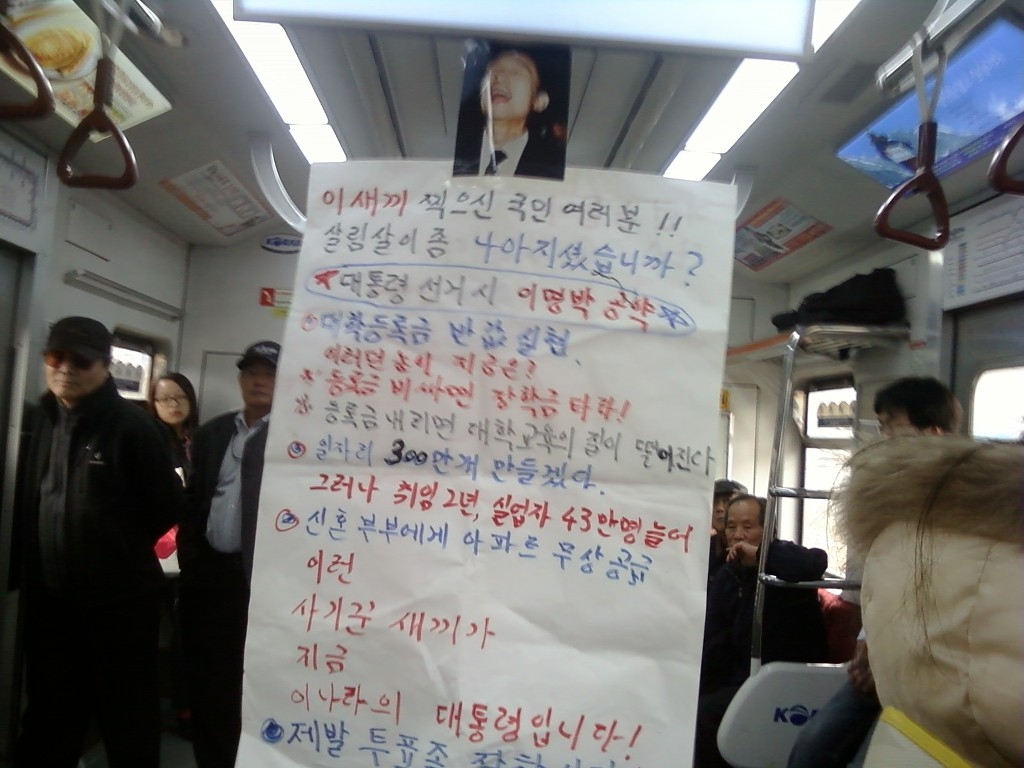 이새끼 찍으신 국민 여러분 !!
살림살이 좀 나아지셨습니까?
★대통령 선거시 이명박 공약★
① 대학등록금 반값 실현.
이러던 놈이 지금은?
※ 등록금 비싸면 장학금 타라!
※ 등록금 내리면 대학교육의 질이 떨어진다
② 일자리 300만개 만들겠다.
그러나 취임 2년, 실업자 43만명 늘어
③ 신혼부부에게 아파트 무상공급
이런
사기꾼 새끼가
지금
이나라의 대통령입니다!
제발 투표좀